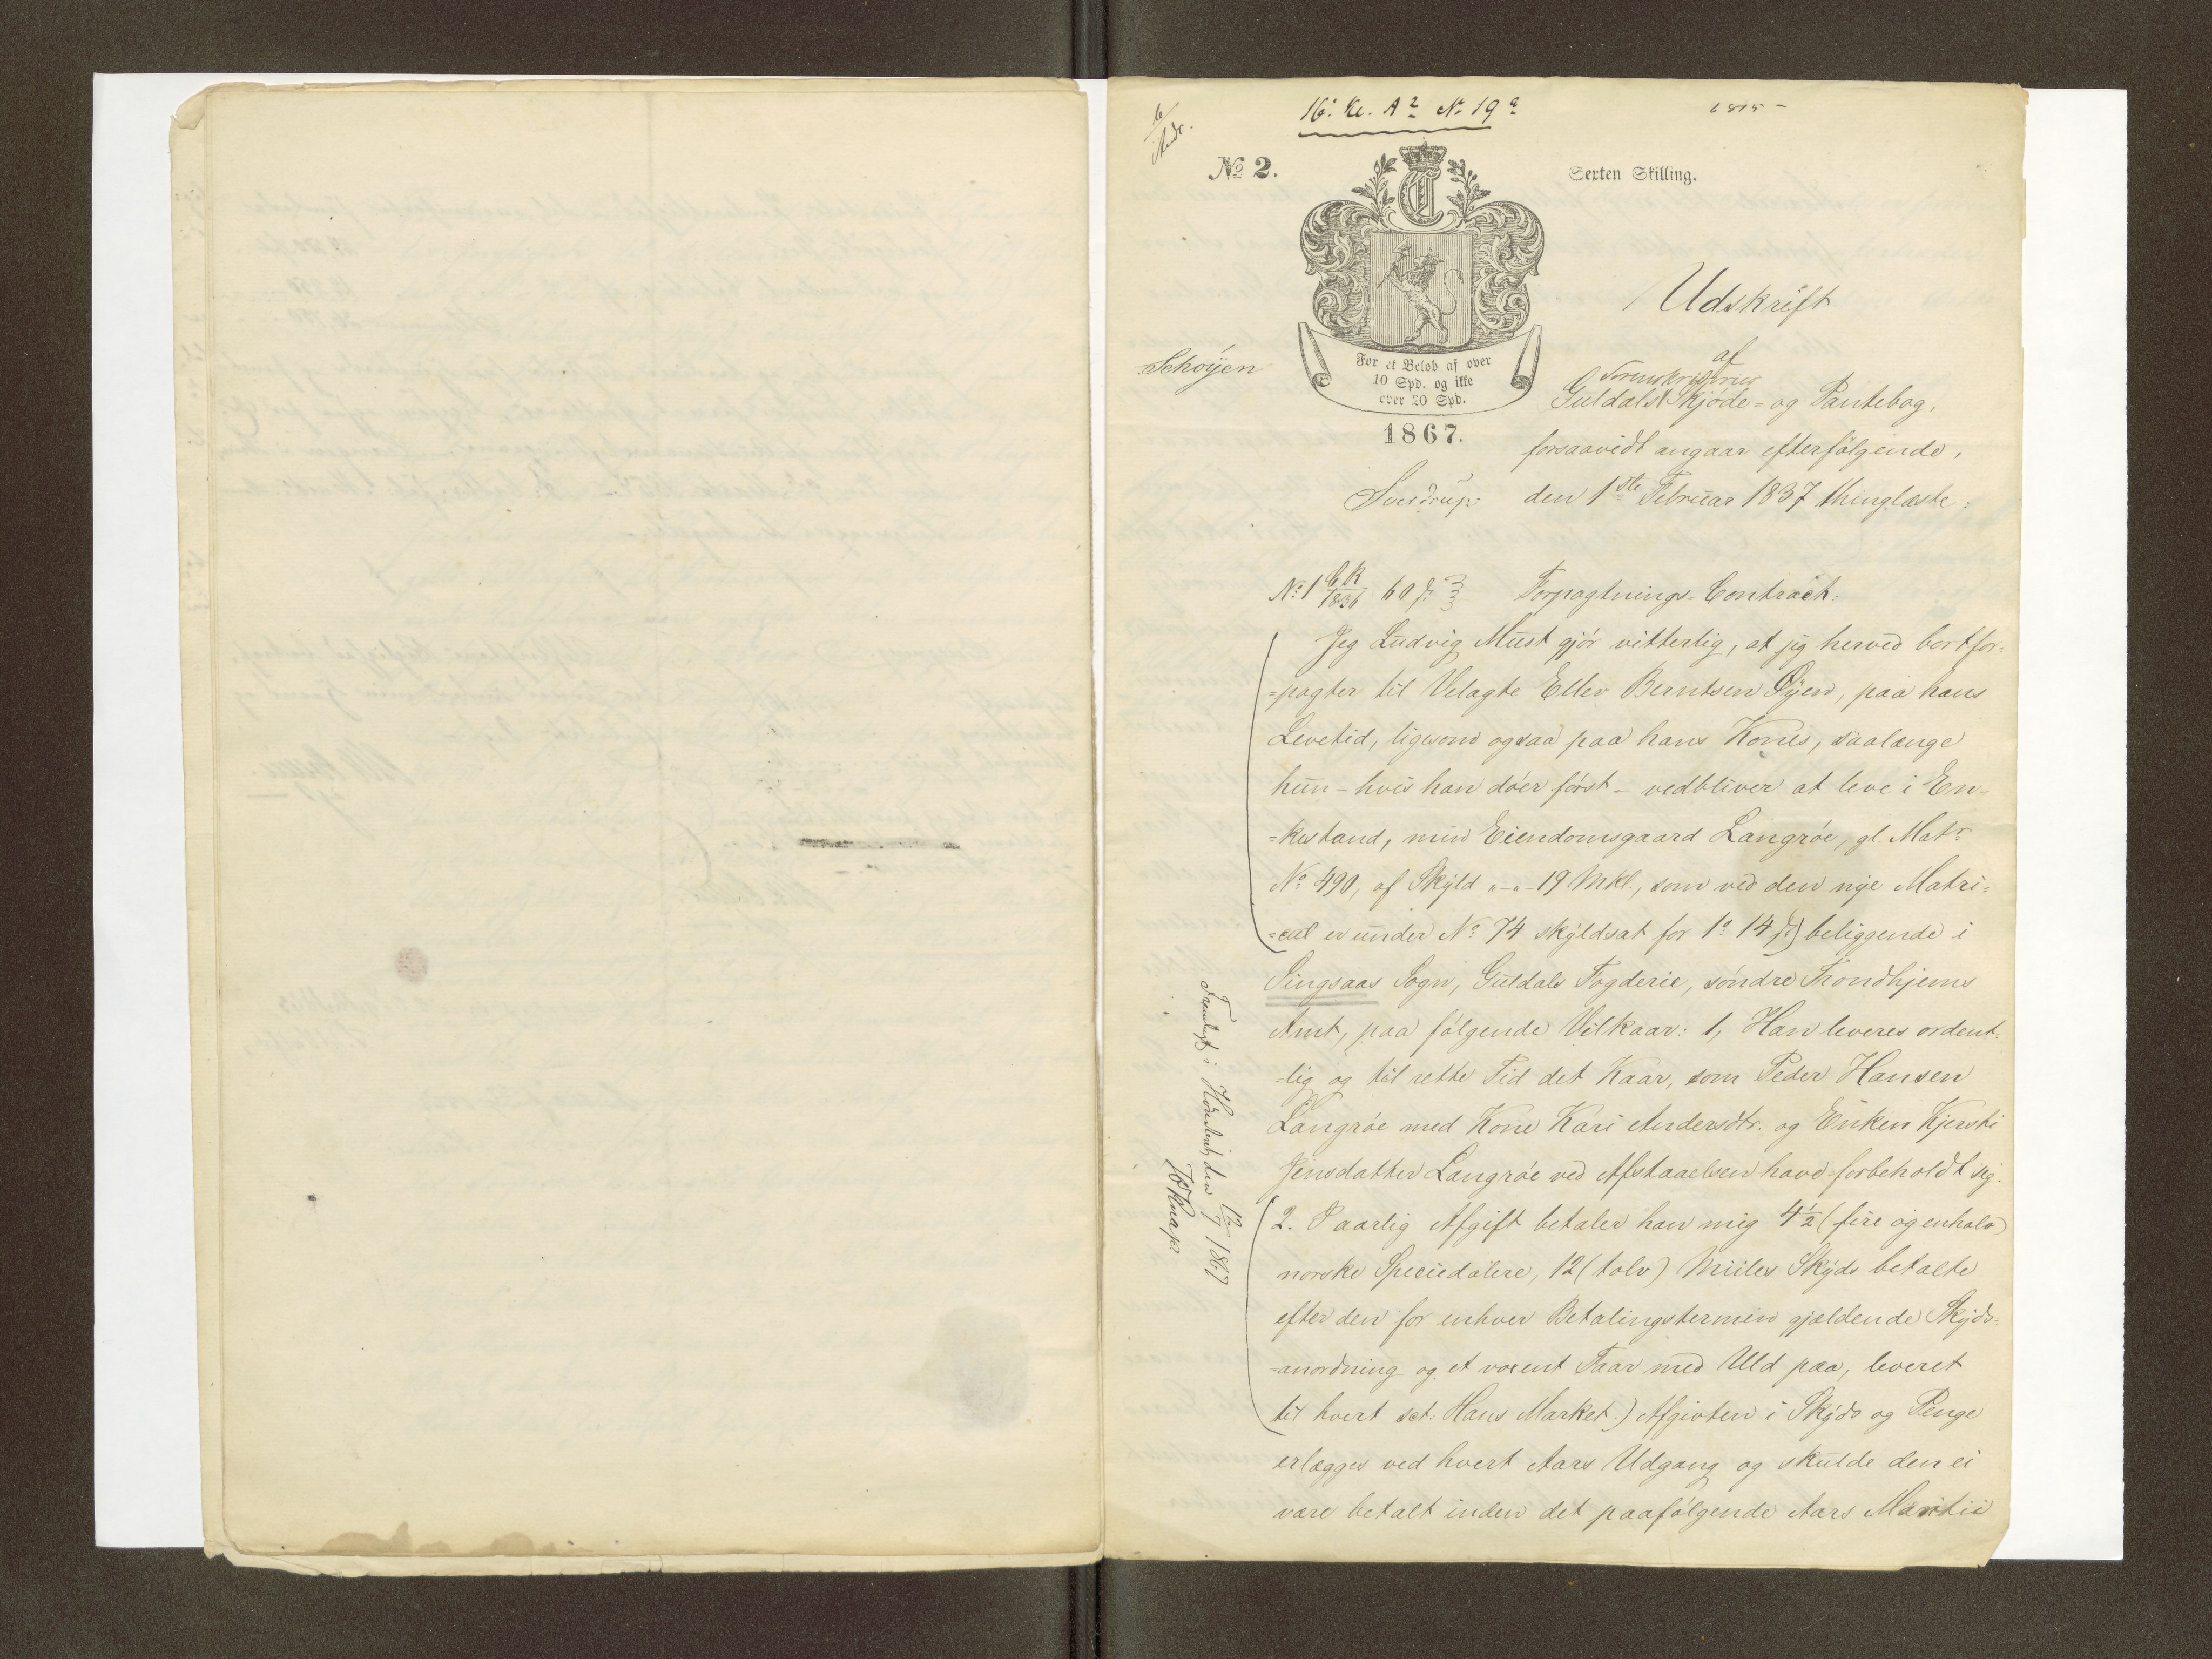 16. Ke. A2 No 19a
6
Andr.
No 2.
Sexten Skilling.
Udskrift
af
Schøÿen
For et Beløb af over
10 Spd. og ikke
over 20 Spd.
Sorenskriveriets
Guldals Skjøde- og Pantebog,
1867.
forsaavidt angaar efterfølgende,
Sverdrup
den 1ste Februar 1837 thinglæste:
No 1 CR/1836 60 ſ 3/3 Forpagtnings-Contract.
Jeg Ludvig Must gjør vitterlig, at jeg herved bortfor-
-pagter til Velagte Ellev Berntsen Øÿen, paa hans
Levetid, ligesom ogsaa paa hans Kones, saalænge
hun - hvis han døer først - vedbliver at leve i En-
-kestand, min Eiendomsgaard Langrøe, gl. Matr
No 490, af Skÿld „-„-19 Mkl., som ved den nÿe Matri-
-cul er under No 74 skÿldsat for 1 14 ſ) beliggende i
Singsaas Sogn, Guldals Fogderie, søndre Trondhjems
Amt, paa følgende Vilkaar: 1, Han leveres ordent-
-lig og til rette Tid det Kaar, som Peder Hansen
Langrøe med Kone Kari Andersdtr. og Enken Kjersti
Jensdatter Langrøe ved Afstaaelsen have forbeholdt sig.
2. I aarlig Afgift betaler han mig 4½ (fire og enhalv)
norske Speciedalere, 12 (tolv) Miiles Skÿds betalte
efter den for enhver Betalingstermin gjældende Skÿds-
-anordning og et voxent Faar med Uld paa, leveret
til hvert sct. Hans Market.) Afgivten i Skÿds og Penge
erlægges ved hvert Aars Udgang og skulde den ei
være betalt inden det paafølgende Aars Martii
Fremlagt i den 12/9 1867
Knap